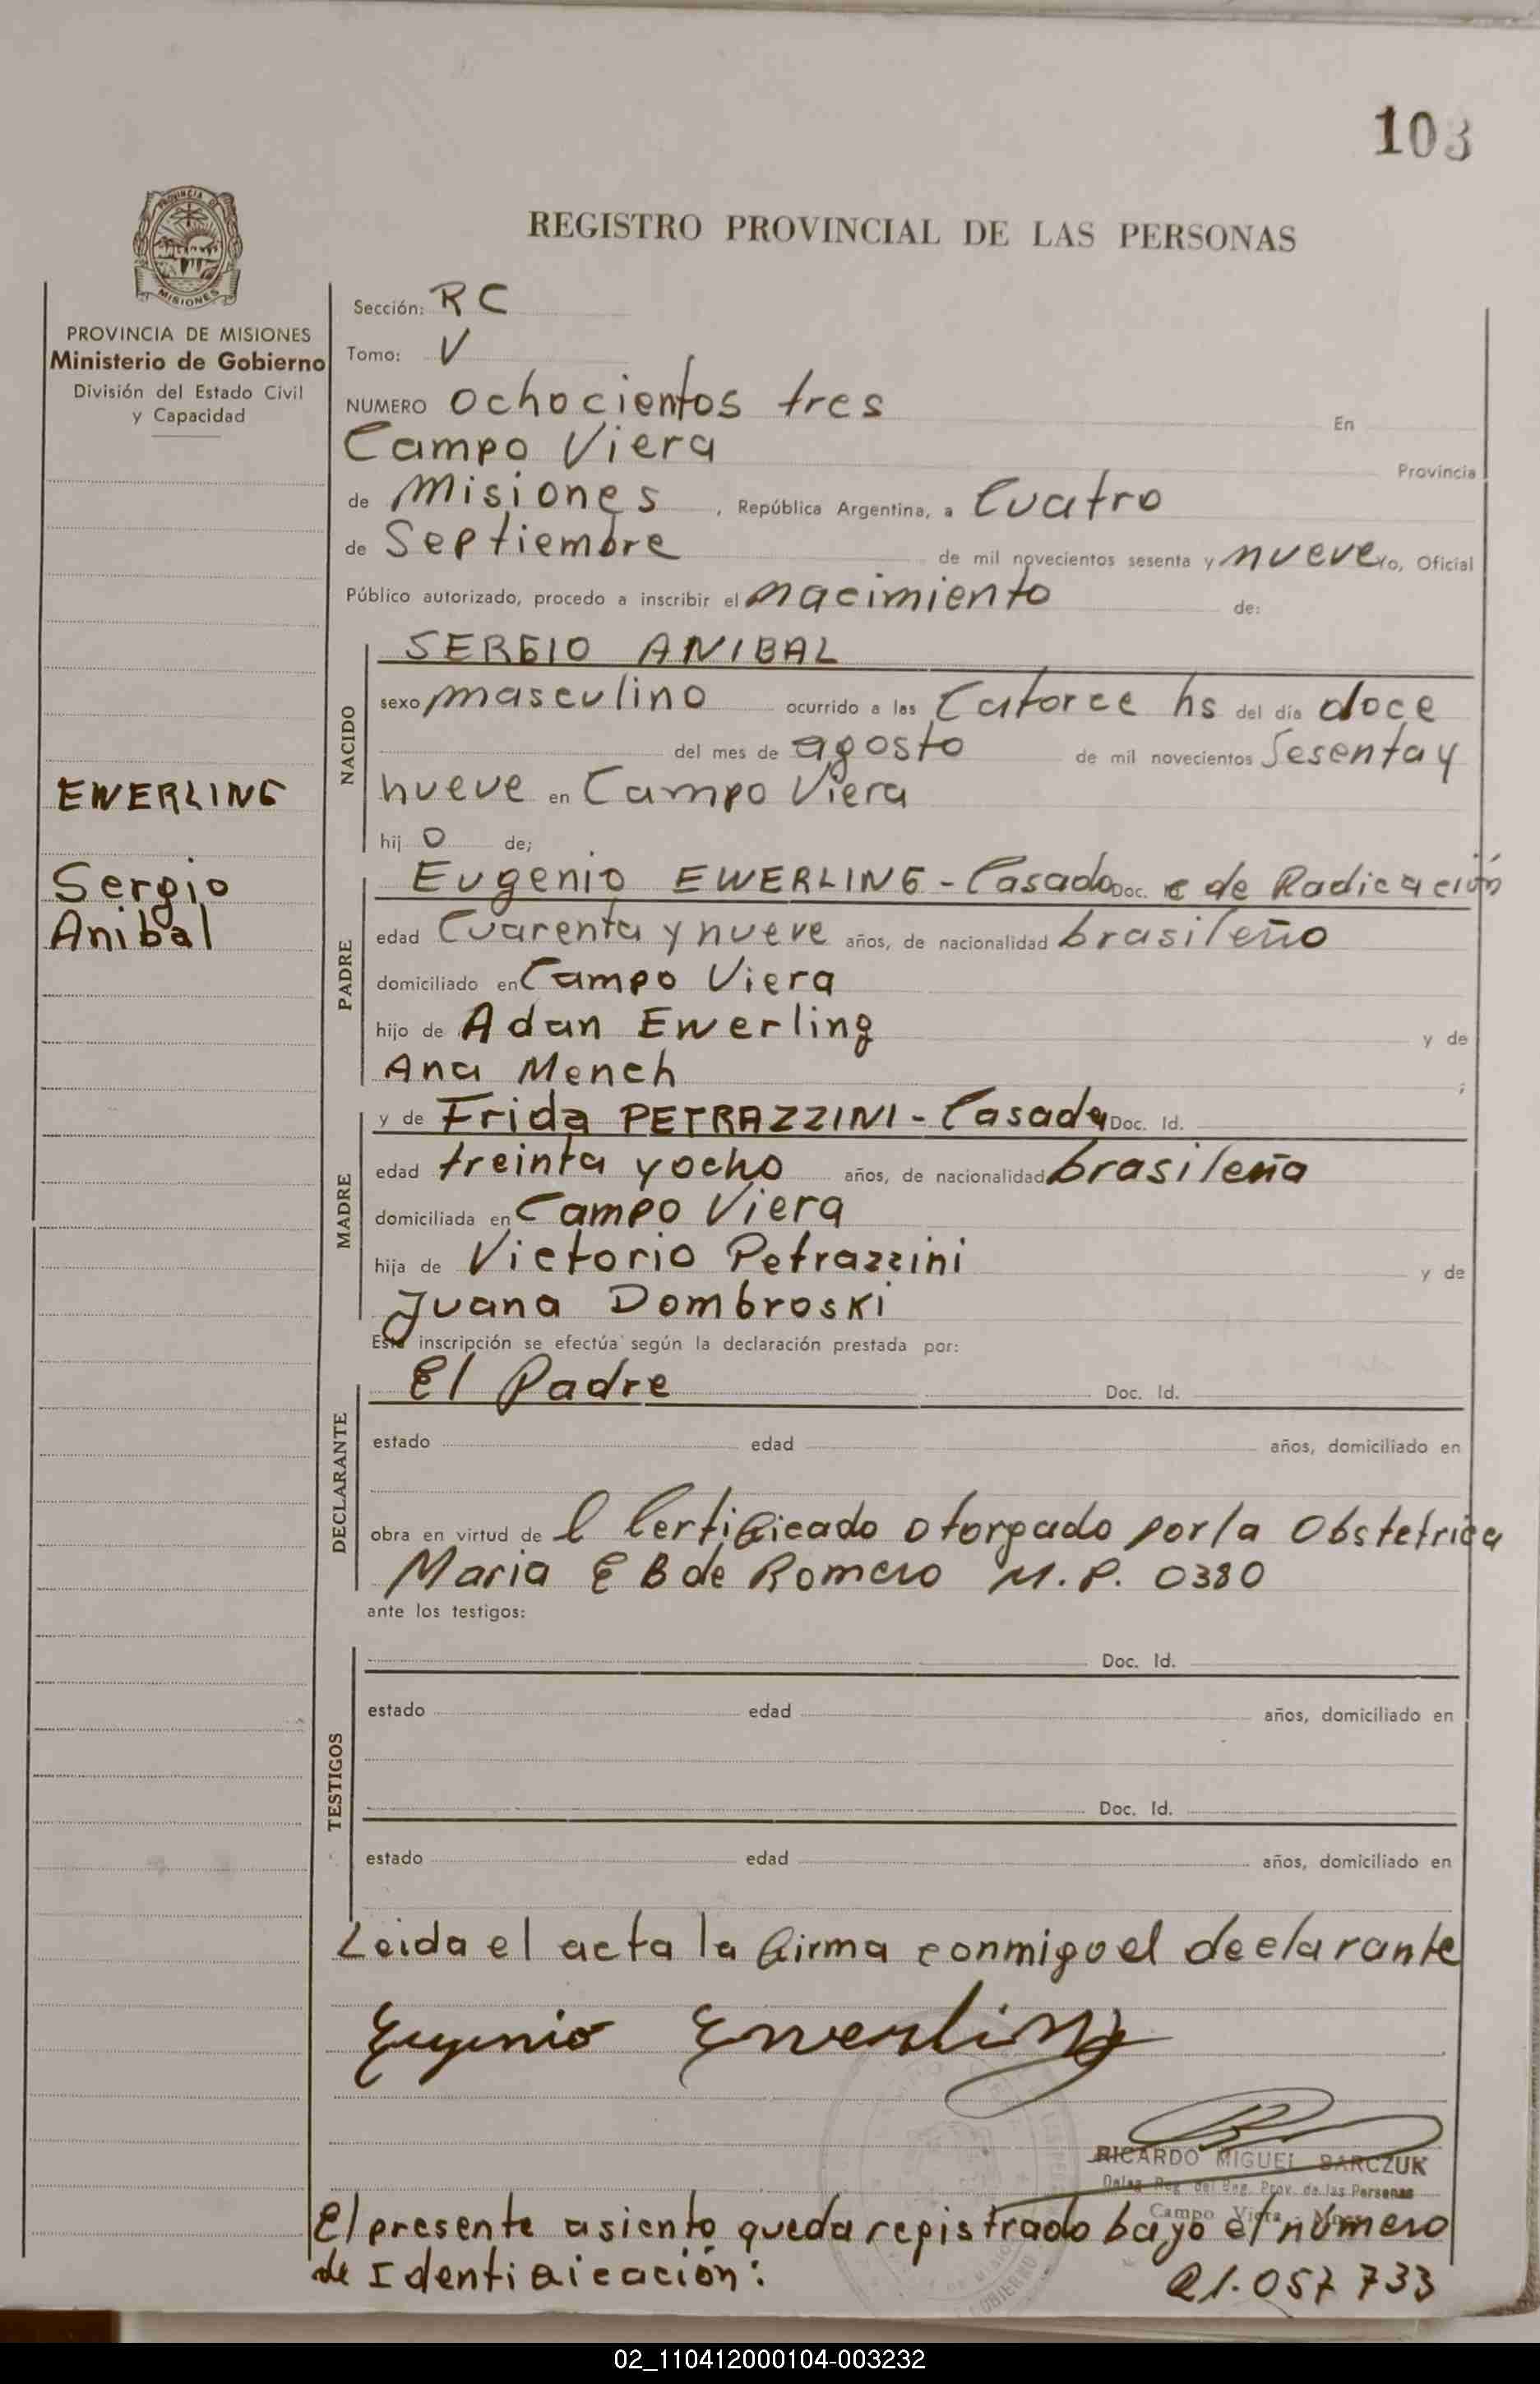 103
PROVINCIA DE MISIONES
REGISTRO PROVINCIAL DE LAS PERSONAS
PROVINCIA DE MISIONES
Ministerio de Gobierno
División del Estado Civil
y Capacidad
EWERLING
Sergio
Anibal
Sección: R C
Tomo: V
NUMERO Ochocientos tres En
Campo Viera Provincia
de Misiones, República Argentina, a Cuatro
de Septiembre de mil novecientos sesenta y nueve yo, Oficial
Público autorizado, procedo a inscribir el nacimiento de:
NACIDO
SERGIO ANIBAL
sexo masculino ocurrido a las Catorce hs del día doce
del mes de agosto de mil novecientos Sesenta y
nueve en Campo Viera
hij o de;
PADRE
Eugenio EWERLING - Casado Doc. c de Radicación
edad Cuarenta y nueve años, de nacionalidad brasileño
domiciliado en Campo Viera
hijo de Adan Ewerling y de
Ana Mench ;
MADRE
y de Frida PETRAZZINI - Casada Doc. Id.
edad treinta y ocho años, de nacionalidad brasileña
domiciliada en Campo Viera
hija de Victorio Petrazzini y de
Juana Dombroski
Esta inscripción se efectúa según la declaración prestada por:
DECLARANTE
El Padre Doc. Id.
estado edad años, domiciliado en
obra en virtud de l Certificado otorgado por la Obstetrica
Maria E B de Romero M.P. 0380
ante los testigos:
TESTIGOS
Doc. Id.
estado edad años, domiciliado en
Doc. Id.
estado edad años, domiciliado en
Leida el acta la firma conmigo el declarante
Eugenio Ewerling
RICARDO MIGUEL BARCZUK
Deleg. Reg. del Reg. Prov. de las Personas
Campo Viera - Mnes.
El presente asiento queda registrado bajo el número
de Identificación: 21.057 733
02_110412000104-003232